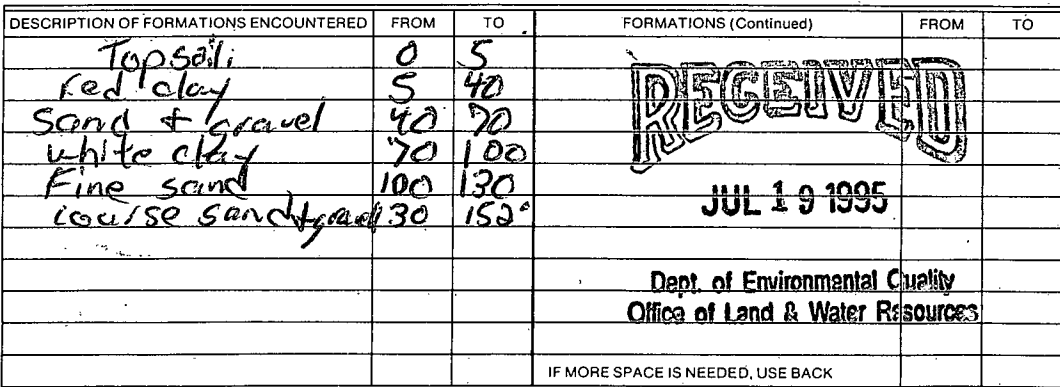 DESCRIPTION OF FORMATIONS ENCOUNTERED FROM TO FORMATIONS (Continued) FROM TO
Topsoil 0 5
red clay 5 40
Sand + gravel 40 70
white clay 70 100
Fine sand 100 130
course sand + gravel 130 152
RECEIVED
JUL 19 1995
Dept. of Environmental Quality
Office of Land & Water Resources
IF MORE SPACE IS NEEDED, USE BACK